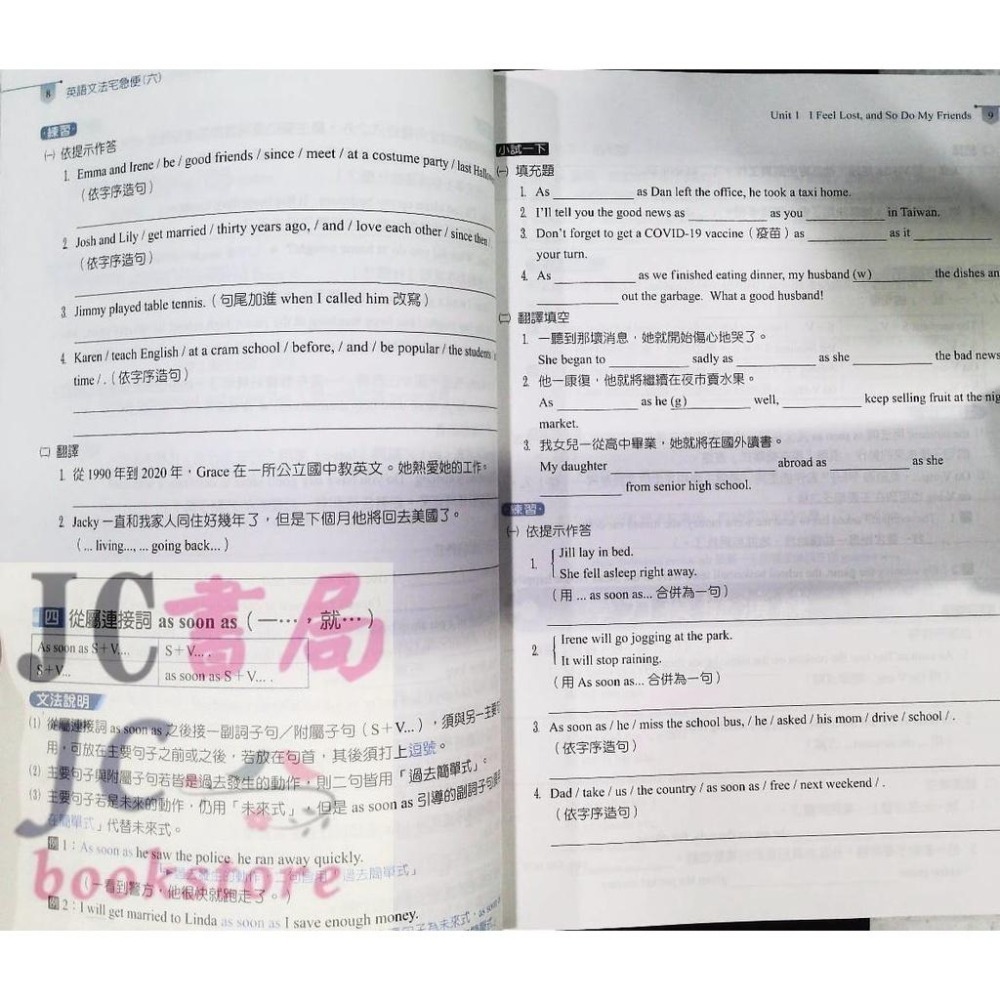 8 英語文法宅急便(六)
練習
㈠ 依提示作答
1. Emma and Irene / be / good friends / since / meet / at a costume party / last
(依字序造句)
2. Josh and Lily / get married / thirty years ago, / and / love each other / since then / .
(依字序造句)
3. Jimmy played table tennis. (句尾加進 when I called him 改寫)
4. Karen / teach English / at a cram school / before, / and / be popular / the students
time / . (依字序造句)
㈡ 翻譯
1. 從 1990 年到 2020 年,Grace 在一所公立國中教英文。她熱愛她的工作。
2. Jacky 一直和我家人同住好幾年了,但是下個月他將回去美國了。
(... living..., ... going back...)
四 從屬連接詞 as soon as (一…,就…)
As soon as S+V..., S+V... .
S+V... as soon as S+V... .
文法說明
(1) 從屬連接詞 as soon as 之後接一副詞子句/附屬子句(S+V...),須與另一主要
用,可放在主要句子之前或之後,若放在句首,其後須打上逗號。
(2) 主要句子與附屬子句若皆是過去發生的動作,則二句皆用「過去簡單式」。
(3) 主要句子若是未來的動作,仍用「未來式」,但是 as soon as 引導的副詞子句
在簡單式」代替未來式。
例1:As soon as he saw the police, he ran away quickly.
二句皆用「過去簡單式」
(一看到警方,他很快就跑走了。)
例2:I will get married to Linda as soon as I save enough money.
Unit 1 I Feel Lost, and So Do My Friends 9
小試一下
㈠ 填充題
1. As ________ as Dan left the office, he took a taxi home.
2. I'll tell you the good news as ________ as you ________ in Taiwan.
3. Don't forget to get a COVID-19 vaccine(疫苗)as ________ as it ________
your turn.
4. As ________ as we finished eating dinner, my husband (w)________ the dishes an
________ out the garbage. What a good husband!
㈡ 翻譯填空
1. 一聽到那壞消息,她就開始傷心地哭了。
She began to ________ sadly as ________ as she ________ the bad news
2. 他一康復,他就將繼續在夜市賣水果。
As ________ as he (g)________ well, ________ keep selling fruit at the nig
market.
3. 我女兒一從高中畢業,她就將在國外讀書。
My daughter ________ ________ abroad as ________ as she
________ from senior high school.
練習
㈠ 依提示作答
1. Jill lay in bed.
She fell asleep right away.
(用 ... as soon as... 合併為一句)
2. Irene will go jogging at the park.
It will stop raining.
(用 As soon as... 合併為一句)
3. As soon as / he / miss the school bus, / he / asked / his mom / drive / school / .
(依字序造句)
4. Dad / take / us / the country / as soon as / free / next weekend / .
(依字序造句)
JC書局
JC
bookstore